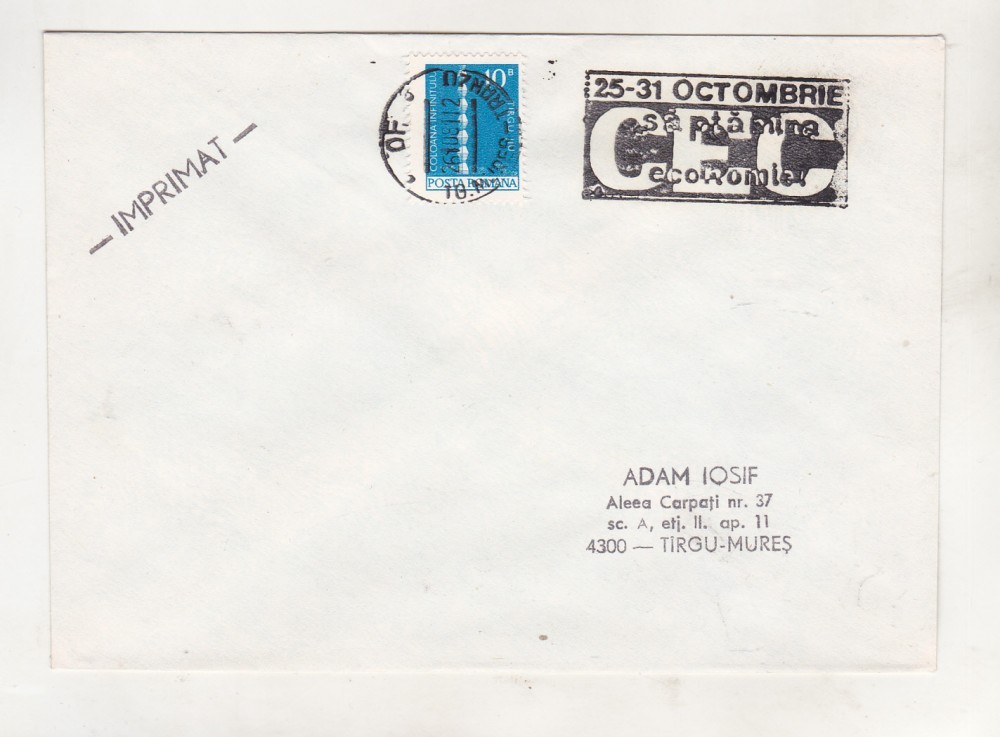 — IMPRIMAT —
10 B
COLOANA INFINITULUI
TIRGU JIU
POSTA ROMANA
OF
TG. MURES
25-31 OCTOMBRIE
CEC
săptămîna
economiei
ADAM IOSIF
Aleea Carpați nr. 37
sc. A, etj. II. ap. 11
4300 — TÎRGU-MUREȘ